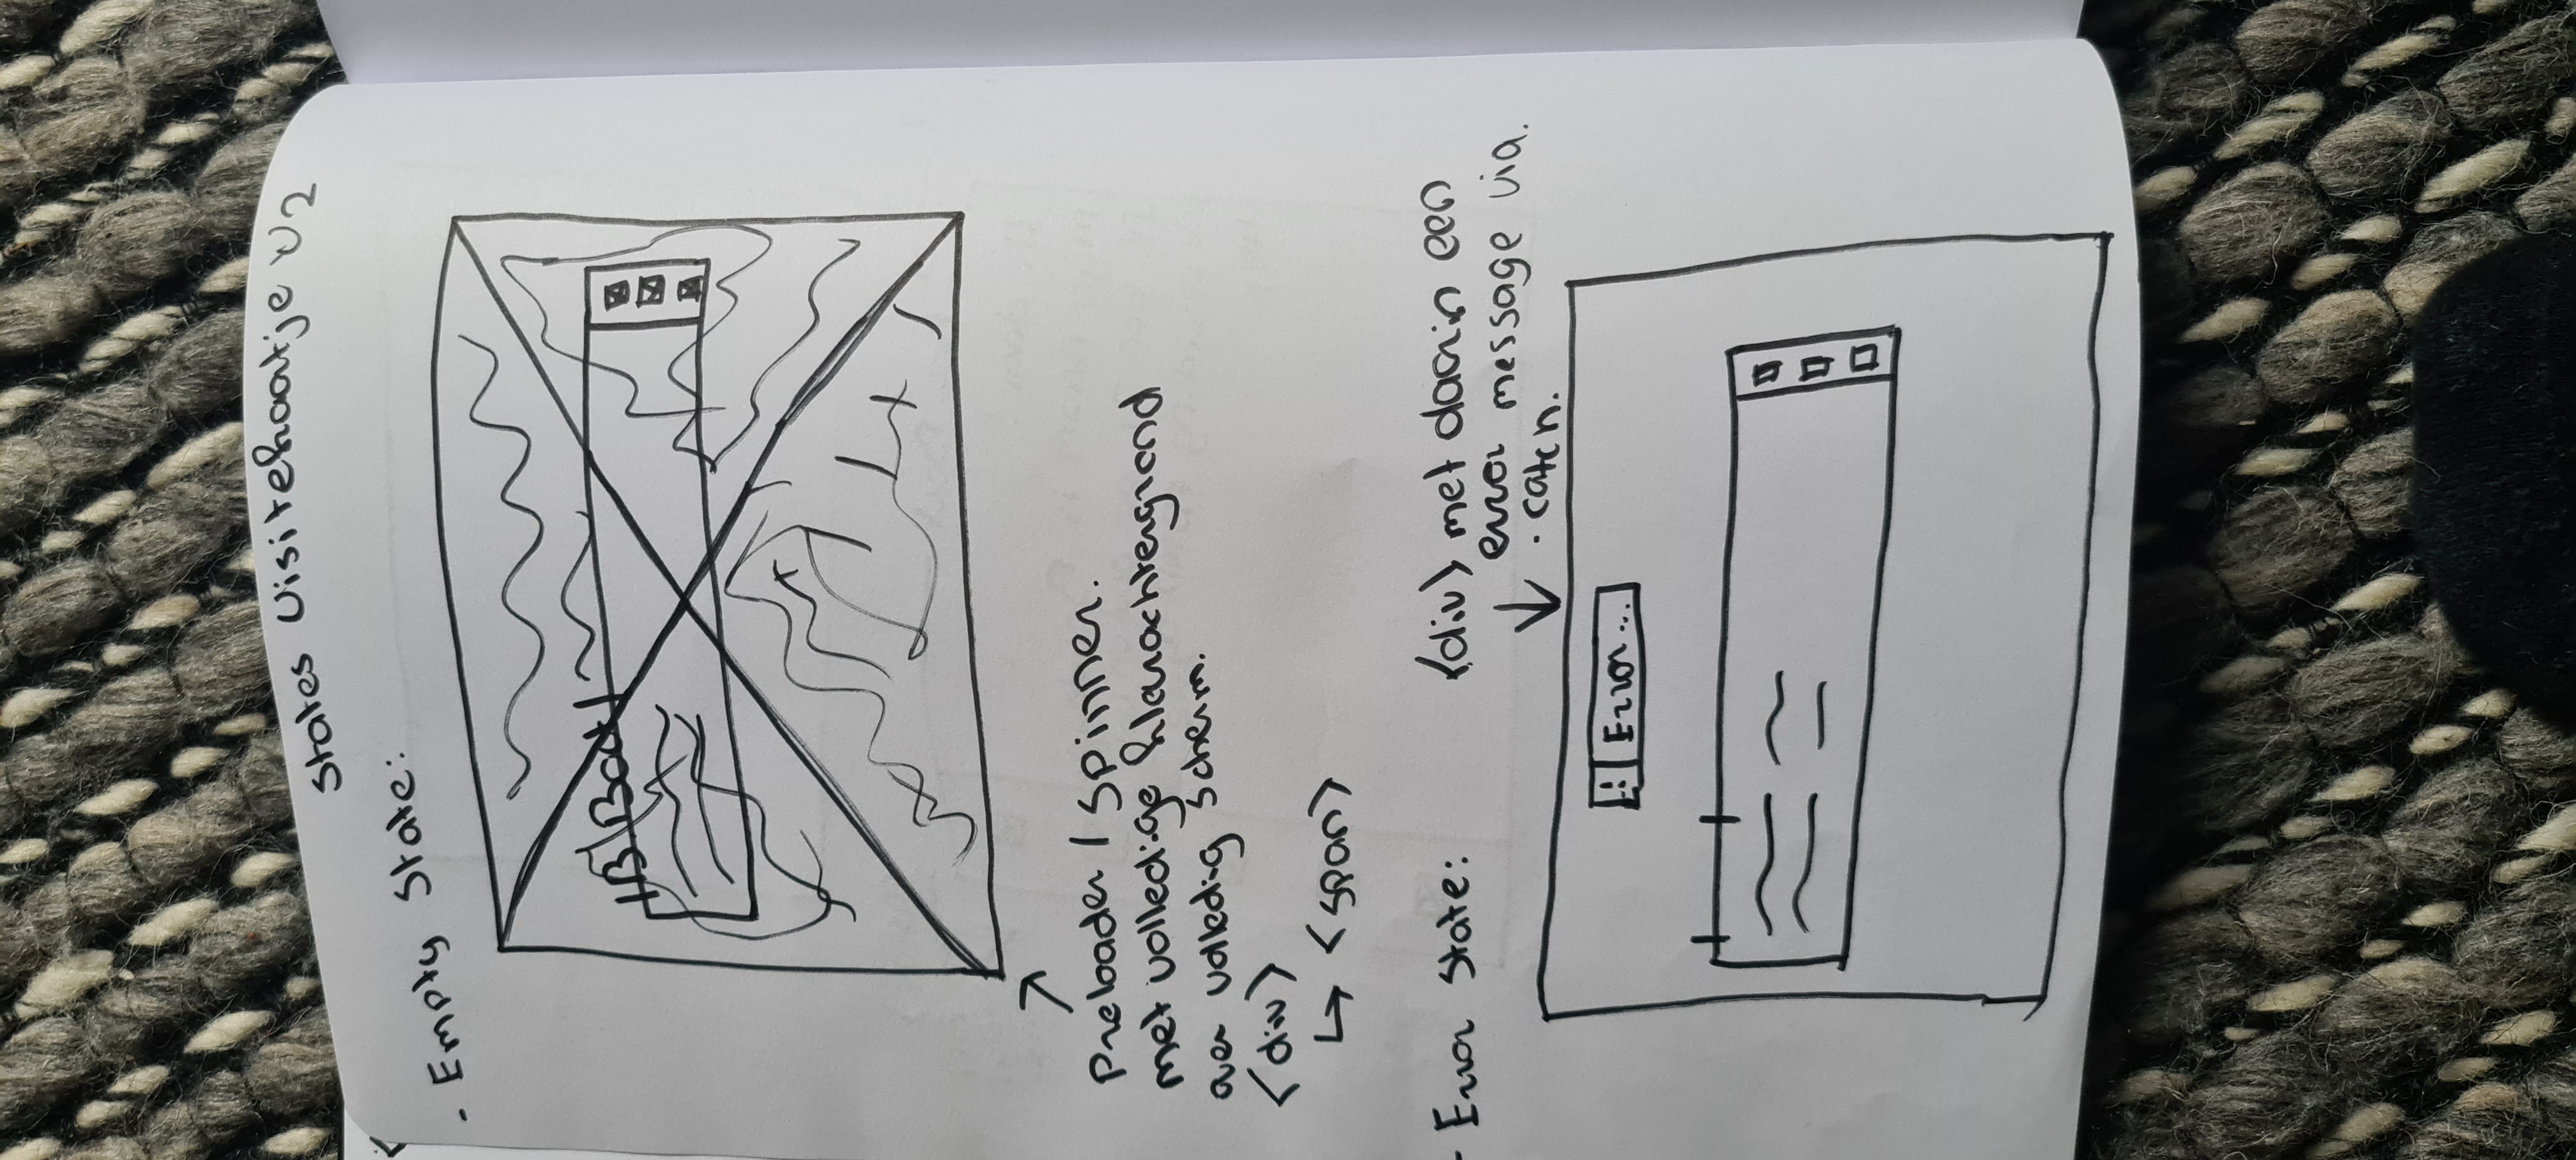 States Visitekaartje V2
- Empty State:
Preloader / spinner.
met volledige kleurachtergrond
over volledig scherm.
<div>
↳ <span>
- Error State:
<div> met daarin een
error message via
.catch.
! Error...